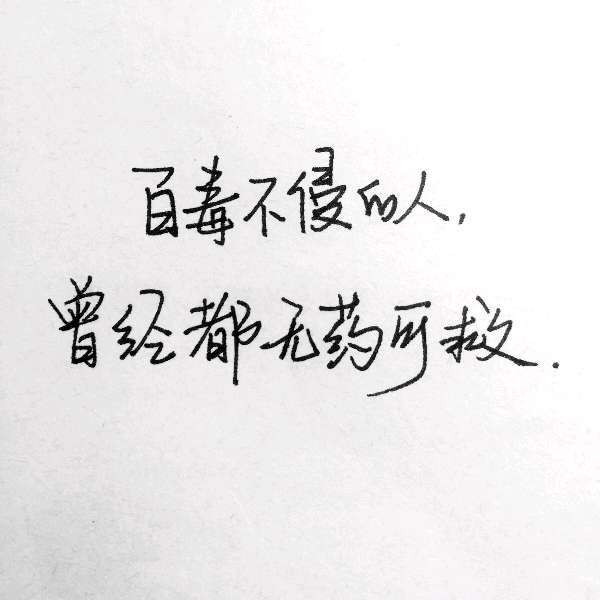 百毒不侵的人,
曾经都无药可救.